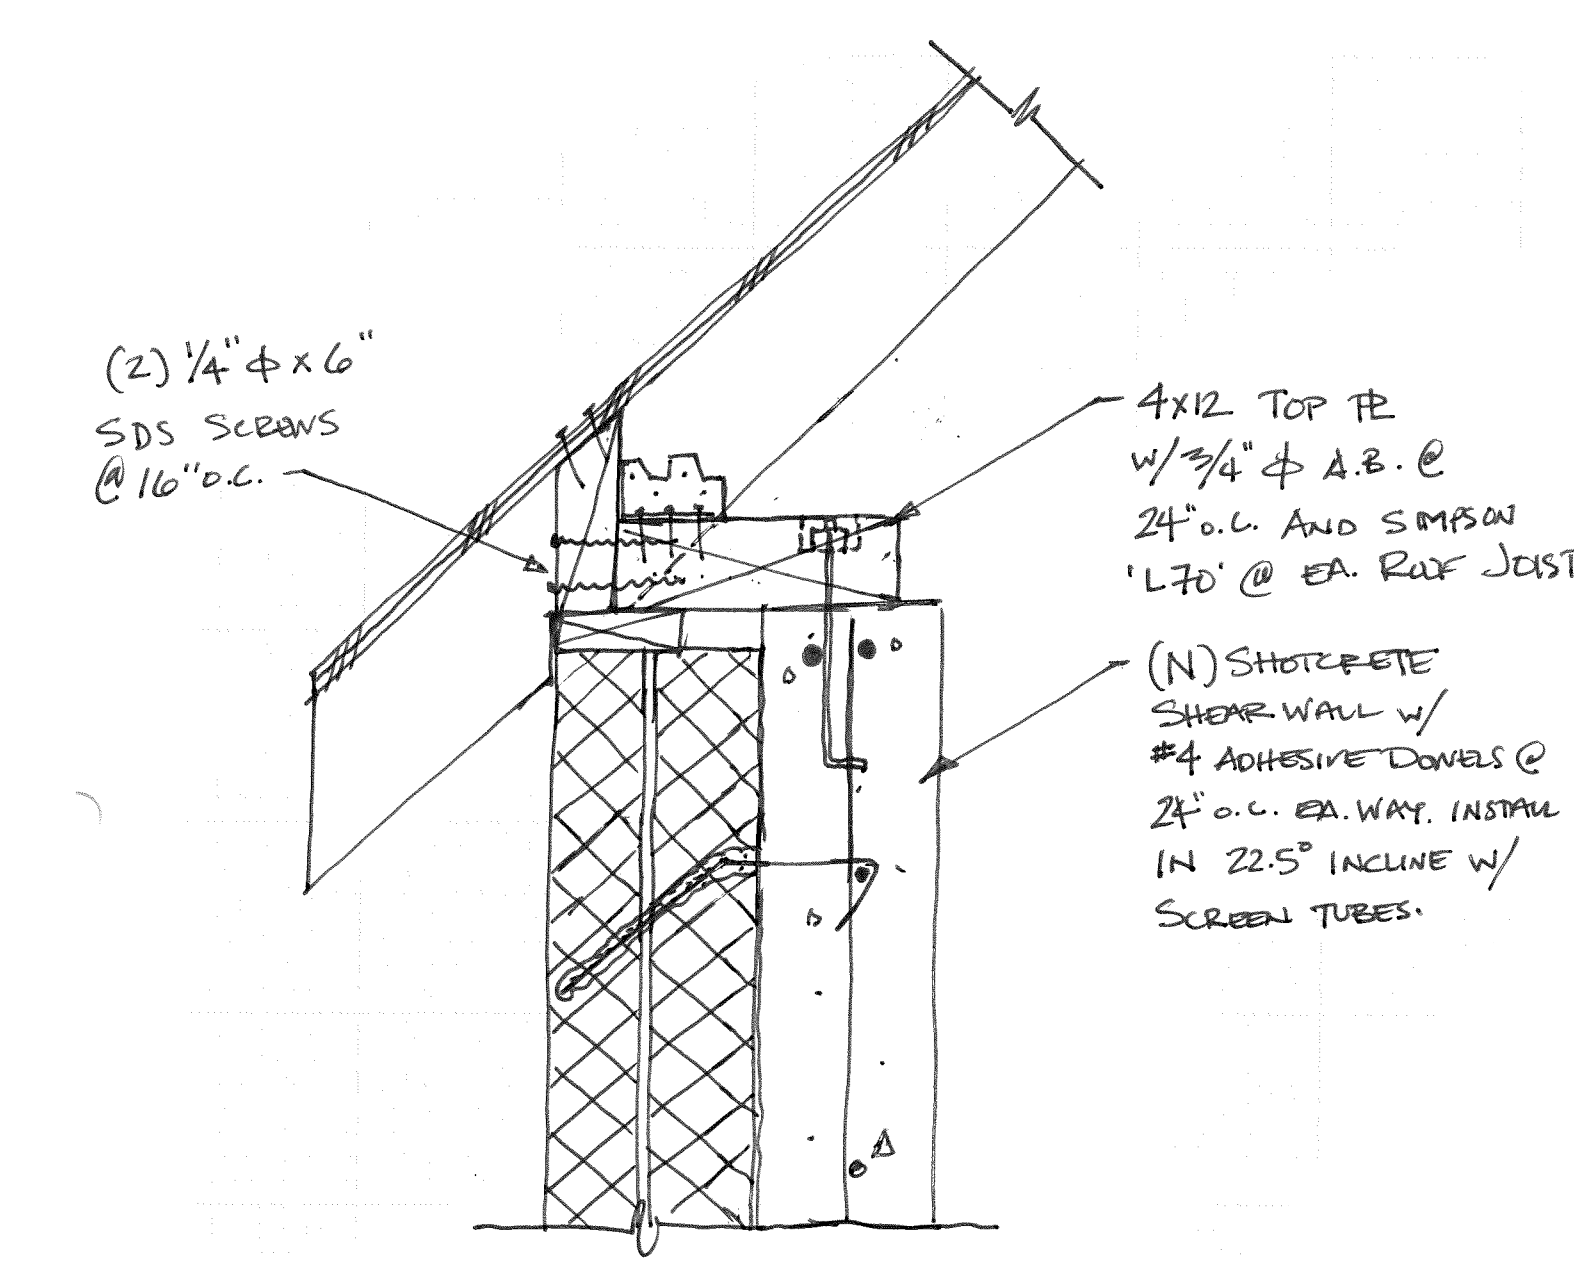 (2) 1/4" ϕ x 6"
SDS SCREWS
@ 16" O.C.
4x12 TOP PL
W/ 3/4" ϕ A.B. @
24" O.C. AND SIMPSON
'L70' @ EA. ROOF JOIST
(N) SHOTCRETE
SHEAR WALL W/
#4 ADHESIVE DOWELS @
24" O.C. EA. WAY. INSTALL
IN 22.5° INCLINE W/
SCREEN TUBES.